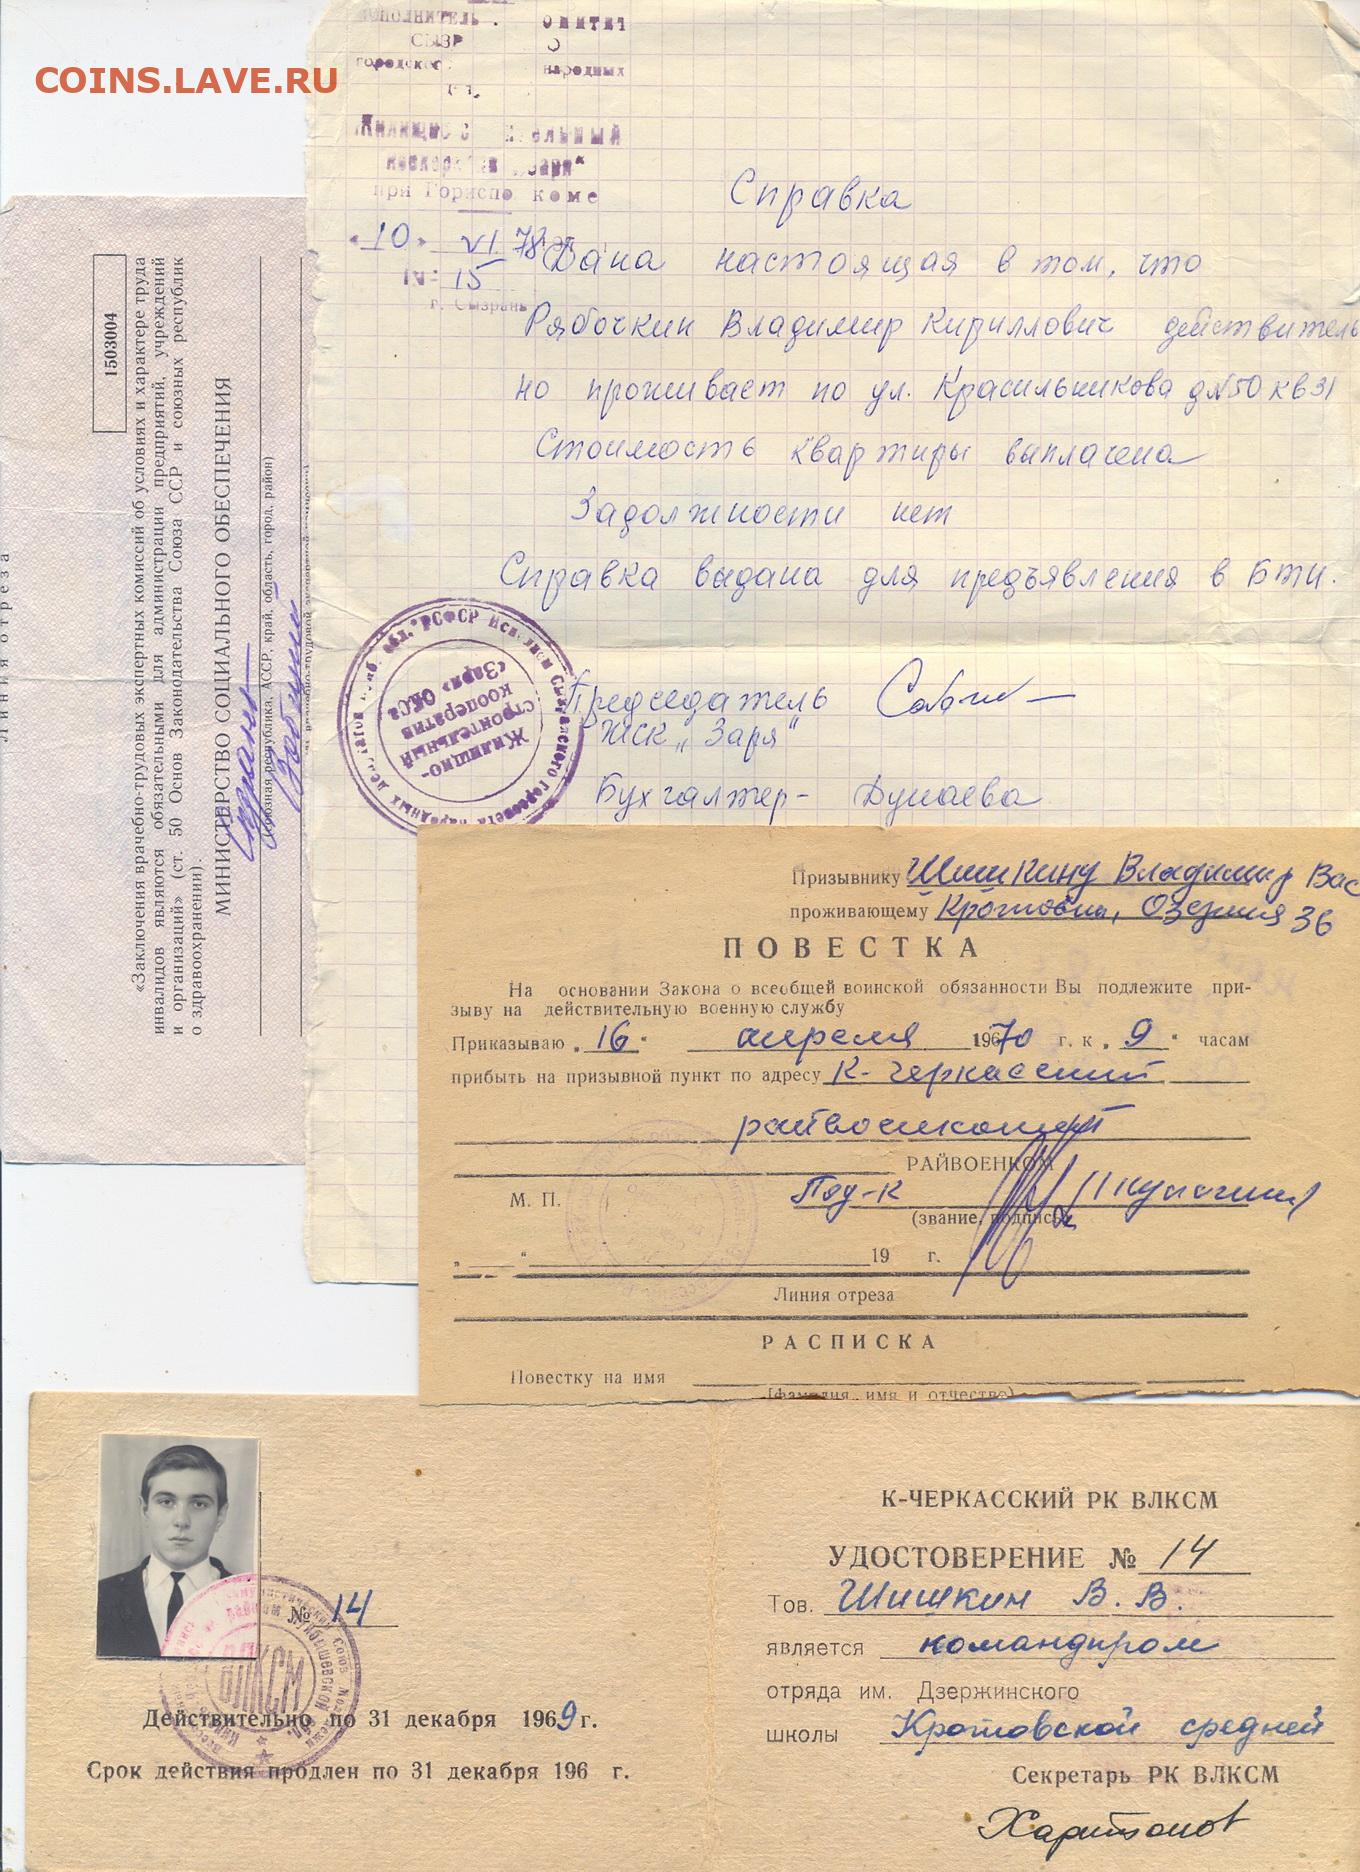 COINS.LAVE.RU
городск народных
при Гориспо коме
"10" VI 78
№ 15
г. Сызрань
Справка
Дана настоящая в том, что
Рябочкин Владимир Кириллович действитель
но проживает по ул. Красильникова д№50 кв31
Стоимость квартиры выплачена
Задолжности нет
Справка выдана для предъявления в БТИ.
Председатель
ЖСК „Заря"
Бухгалтер- Дунаева
Жилищно-
строительный
кооператив
«Заря»
Линия отреза
1503004
«Заключения врачебно-трудовых экспертных комиссий об условиях и характере труда
инвалидов являются обязательными для администрации предприятий, учреждений
и организаций» (ст. 50 Основ Законодательства Союза ССР и союзных республик
о здравоохранении).
МИНИСТЕРСТВО СОЦИАЛЬНОГО ОБЕСПЕЧЕНИЯ
(союзная республика, АССР, край, область, город, район)
Призывнику Шишкину Владимир Вас
проживающему Кротовка, Озерная 36
ПОВЕСТКА
На основании Закона о всеобщей воинской обязанности Вы подлежите при-
зыву на действительную военную службу
Приказываю „16" апреля 1970 г. к „9" часам
прибыть на призывной пункт по адресу К-Черкасский
райвоенкомат
РАЙВОЕНКОМ
М. П. Под-к
(звание, подпись
„ " 19 г.
Линия отреза
РАСПИСКА
Повестку на имя
(фамилия, имя и отчество)
№ 14
ВЛКСМ
Действительно по 31 декабря 1969 г.
Срок действия продлен по 31 декабря 196 г.
К-ЧЕРКАССКИЙ РК ВЛКСМ
УДОСТОВЕРЕНИЕ № 14
Тов. Шишкин В. В.
является командиром
отряда им. Дзержинского
школы Кротовской средней
Секретарь РК ВЛКСМ
Харитонов